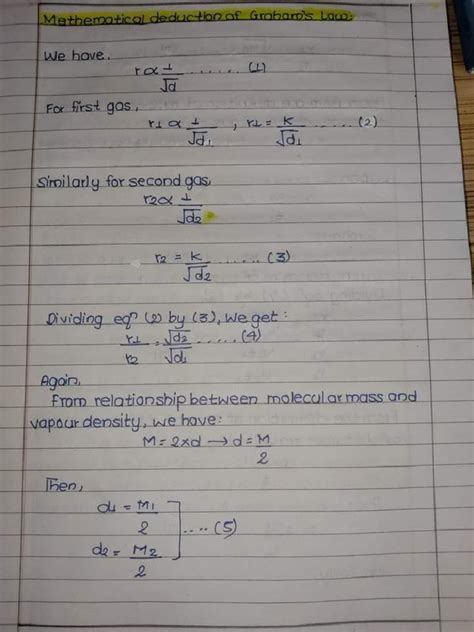 Mathematical deduction of Graham's Law.
We have,
r ∝ 1/√d ...... (1)
For first gas,
r1 ∝ 1/√d1 , r1 = K/√d1 ..... (2)
Similarly for second gas,
r2 ∝ 1/√d2
r2 = K/√d2 ...... (3)
Dividing eqn (2) by (3), we get :
r1/r2 = √d2/√d1 ..... (4)
Again,
From relationship between molecular mass and
vapour density, we have:
M = 2×d → d = M/2
Then,
d1 = M1/2
d2 = M2/2 .... (5)